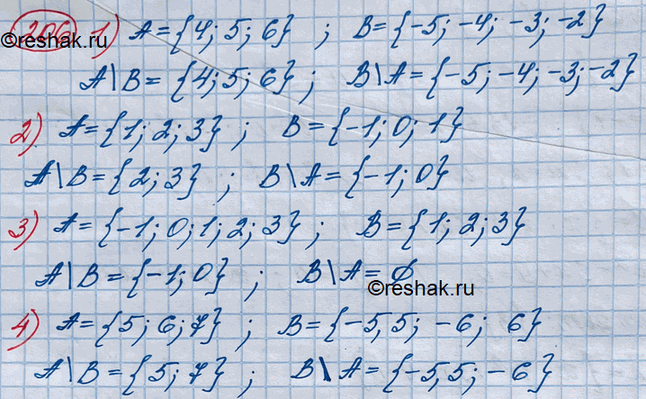 206 1) A={4; 5; 6} ; B={-5; -4; -3; -2}
©reshak.ru
A\B= {4; 5; 6} ; B\A={-5; -4; -3; -2}
2) A={1; 2; 3} ; B={-1; 0; 1}
A\B={2; 3} ; B\A={-1; 0}
3) A={-1; 0; 1; 2; 3} ; B={1; 2; 3}
A\B={-1; 0} ; B\A=∅
©reshak.ru
4) A={5; 6; 7} ; B={-5,5; -6; 6}
A\B={5; 7} ; B\A={-5,5; -6}